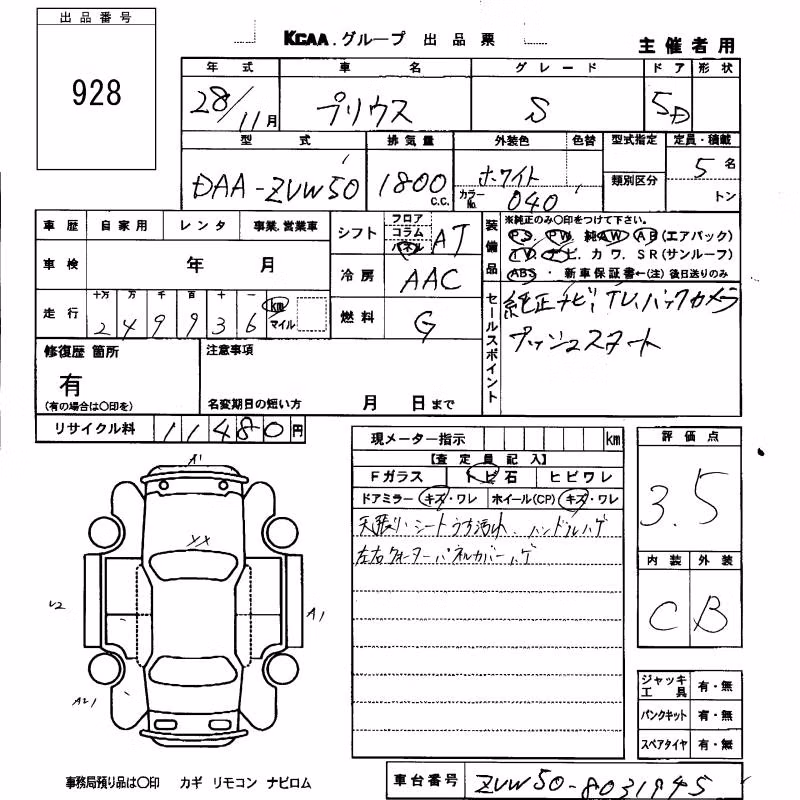 出品番号
928
KCAA.グループ 出品票
主催者用
年式 車名 グレード ドア 形状
28/11月 プリウス S 5D
型式 排気量 外装色 色替 型式指定 定員・積載
DAA-ZVW50 1800c.c. ホワイト 類別区分 5名
カラーNo. 040 トン
車歴 自家用 レンタ 事業.営業車
シフト フロア コラム パネル AT
装備品 ※純正のみ○印をつけて下さい。
PS. PW 純AW AB(エアバック)
TV ナビ. カワ. SR(サンルーフ)
ABS・新車保証書←(注)後日送りのみ
車検 年 月
冷房 AAC
走行 十万 万 千 百 十 一 km マイル
249936
燃料 G
セールスポイント
純正ナビ、TV、バックカメラ
プッシュスタート
修復歴 箇所
有
(有の場合は○印を)
注意事項
名変期日の短い方 月 日まで
リサイクル料 11480円
現メーター指示 km
【査定員記入】
Fガラス トビ石 ヒビワレ
ドアミラー キズ・ワレ ホイール(CP) キズ・ワレ
天張り、シートうす汚れ、ハンドルハゲ
左右クォーターパネルカバーハゲ
評価点
3.5
内装 外装
C B
A1
YX
A1
ジャッキ工具 有・無
パンクキット 有・無
スペアタイヤ 有・無
事務局預り品は○印 カギ リモコン ナビロム
車台番号 ZVW50-8031945